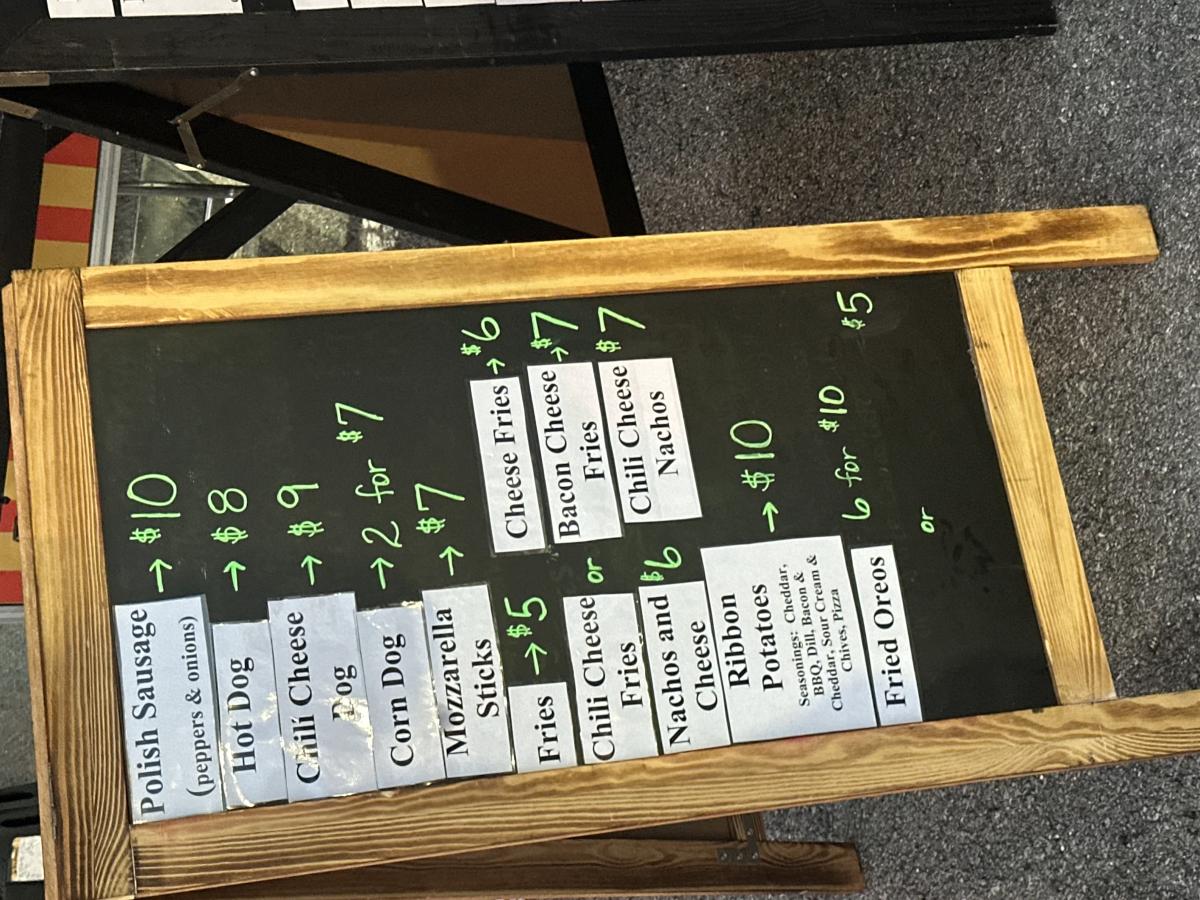 Polish Sausage → $10
(peppers & onions)
Hot Dog → $8
Chili Cheese
Dog → $9
Corn Dog → 2 for $7
Mozzarella
Sticks → $7
Fries → $5
Cheese Fries → $6
Chili Cheese
Fries
or
Bacon Cheese
Fries → $7
Nachos and
Cheese $6
Chili Cheese
Nachos $7
Ribbon
Potatoes → $10
Seasonings: Cheddar,
BBQ, Dill, Bacon &
Cheddar, Sour Cream &
Chives, Pizza
Fried Oreos 6 for $10 $5
or